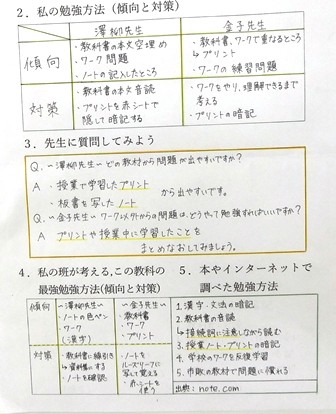 2. 私の勉強方法(傾向と対策)
澤柳先生
金子先生
傾向
・教科書の本文空埋め
・ワーク問題
・ノートの記入したところ
・教科書、ワークで重なるところ
↳プリント
・ワークの練習問題
対策
・教科書の本文音読
・プリントを赤シートで
隠して暗記する
・ワークをやり、理解できるまで
考える
・プリントの暗記
3. 先生に質問してみよう
Q. ~澤柳先生~どの教材から問題が出やすいですか?
A ・授業で学習したプリント
・板書を写したノート
から出やすいです。
Q. ~金子先生~ワーク以外からの問題は、どうやって勉強すればいいですか?
A プリントや授業中に学習したことを
まとめなおしてみましょう。
4. 私の班が考える、この教科の
最強勉強方法(傾向と対策)
傾向
~澤柳先生~
・ノートの色ペン
・ワーク
(漢字)
~金子先生~
・教科書
・ワーク
・プリント
対策
・教科書に線引き
・ノートを確認
・ノートを
ルーズリーフに
写して覚える
・赤シートを
使う
5. 本やインターネットで
調べた勉強方法
1.漢字・文法の暗記
2.教科書の音読
↳接続詞に注意しながら読む
3.授業ノート・プリントの暗記
4.学校のワークを反復学習
5.市販の教材で問題に慣れる
出典: note.com